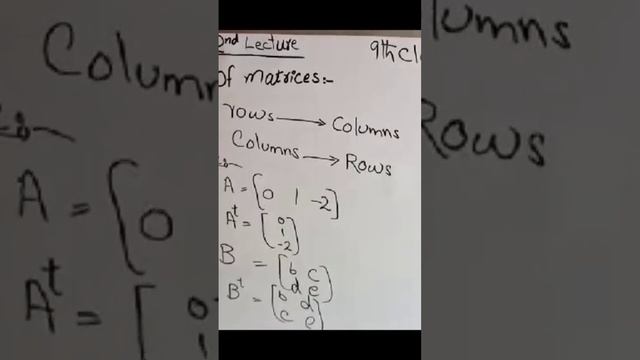 2nd Lecture
9th Cl
of matrices:-
rows → Columns
Columns → Rows
A = [0 1 -2]
Aᵗ = [0
1
-2]
B = [b c
d e]
Bᵗ = [b d
c e]